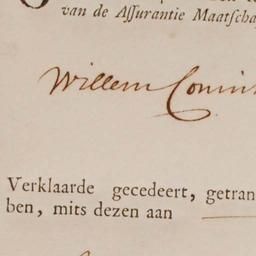 van de Aſſurantie Maatſcha
Willem
Verklaarde gecedeert, getran
ben, mits dezen aan